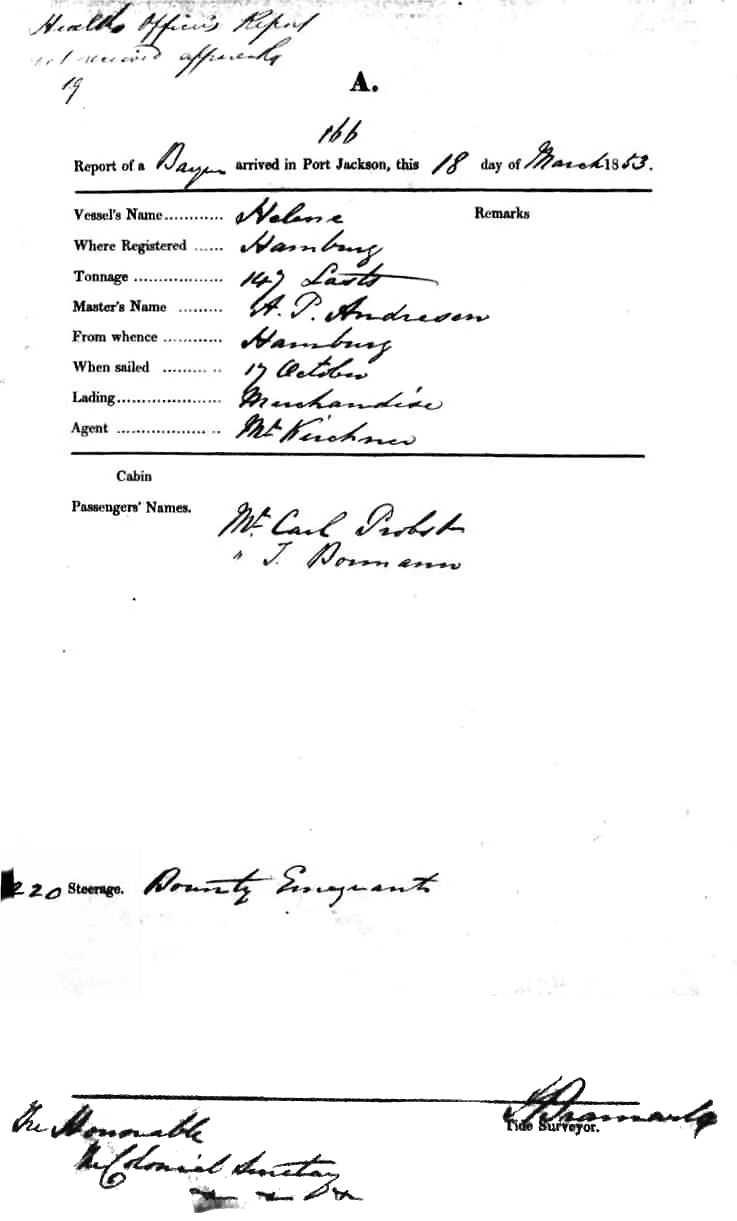 Health Officer's Report
not received apparently
19
A.
166
Report of a Barque arrived in Port Jackson, this 18 day of March 1853.
Vessel's Name............ Helene Remarks
Where Registered ...... Hamburg
Tonnage .................. 147 Lasts
Master's Name ......... A. P. Andresen
From whence ............ Hamburg
When sailed ......... .. 17 October
Lading..................... Merchandise
Agent .................. .. Mr Kirchner
Cabin
Passengers' Names.
Mr. Carl Probst
" J. Bormann
220 Steerage. Bounty Emigrants
Tide Surveyor.
The Honorable
The Colonial Secretary